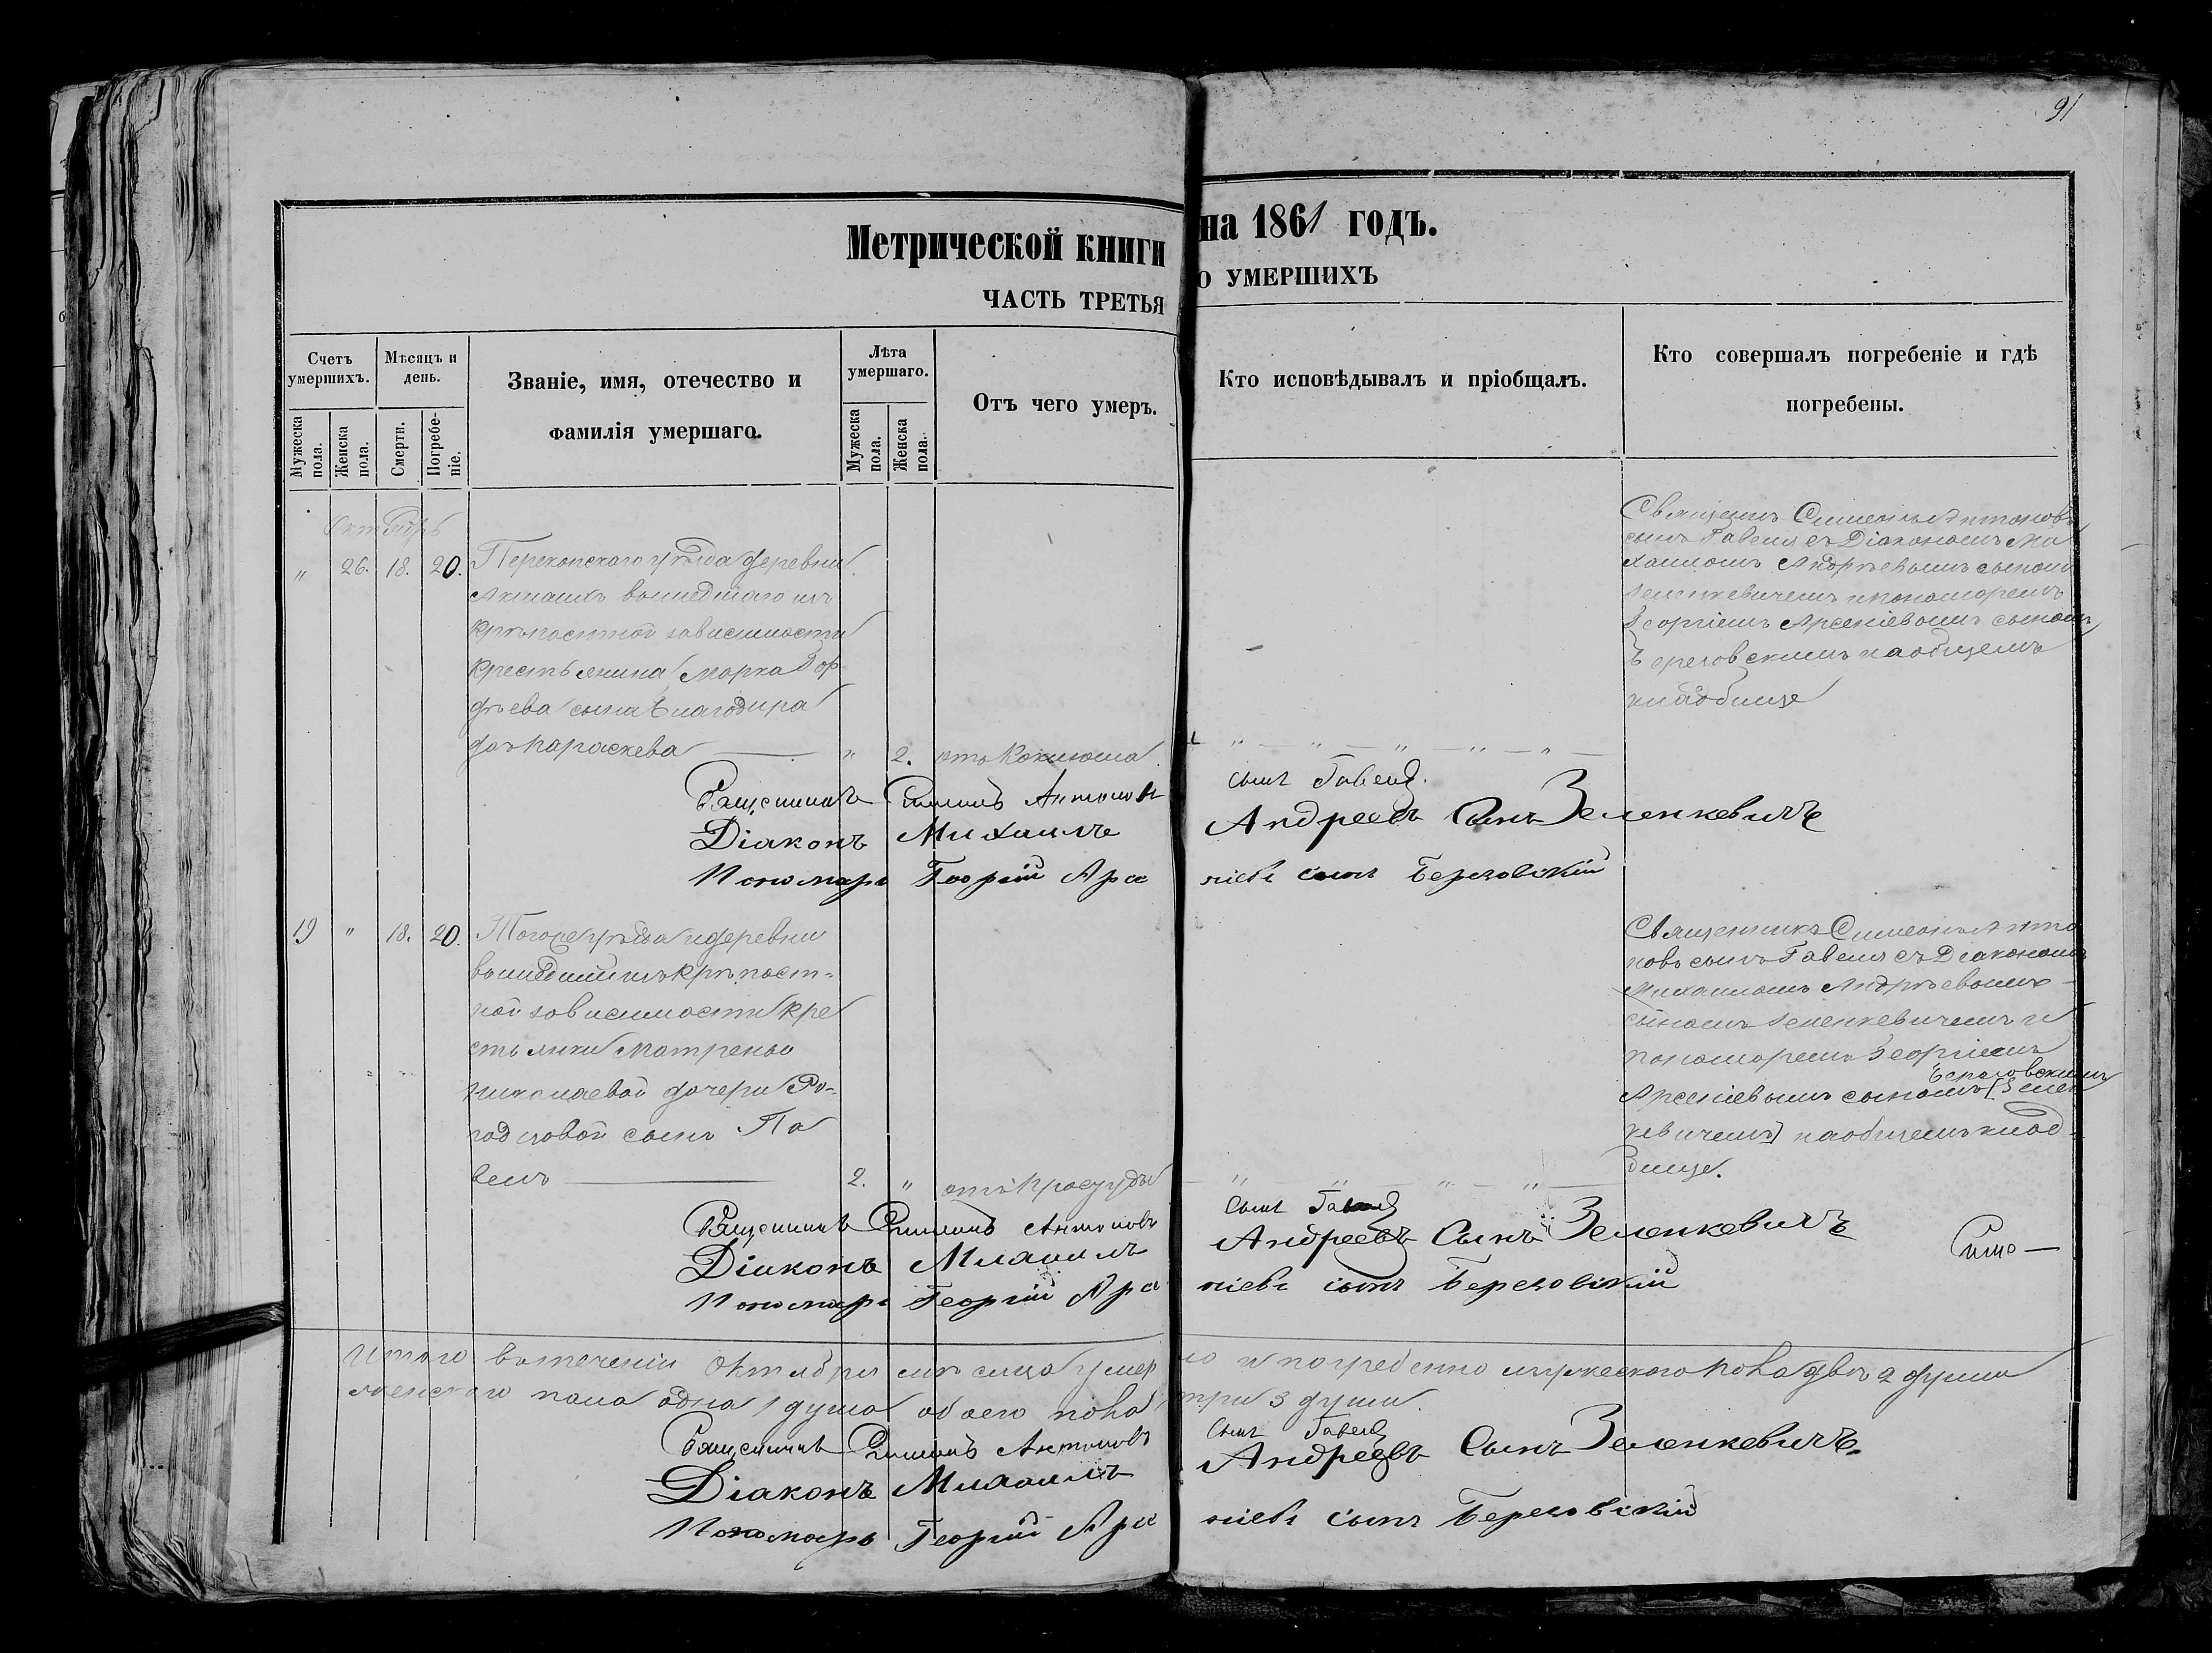 91
Метрической книги на 1861 годъ.
ЧАСТЬ ТРЕТЬЯ О УМЕРШИХЪ
Счетъ умершихъ.
Мужеска пола.
Женска пола.
Мѣсяцъ и день.
Смерти.
Погребеніе.
Званіе, имя, отечество и фамилія умершаго.
Лѣта умершаго.
Мужеска пола.
Женска пола.
Отъ чего умеръ.
Кто исповѣдывалъ и пріобщалъ.
Кто совершалъ погребеніе и гдѣ погребены.
Октябрь
" 26. 18. 20. Перекопскаго уѣзда деревни
вышедшаго изъ
крѣпостной зависимости
крестьянина Марка
сына
дочь Параскева " 2. отъ Коклюша
Священникъ Симеонъ Антоновъ
сынъ Гавель съ Діакономъ Ми
хаиломъ Андреевымъ сыномъ
Зеленкевичемъ и пономаремъ
Георгіемъ Арсеніевымъ сыномъ
Березовскимъ на общемъ
кладбище
Священникъ Симеонъ Антоновъ сынъ Гавель.
Діаконъ Михаилъ Андреевъ Сынъ Зеленкевичъ
Пономарь Георгій Арсеніевъ сынъ Березовскій
19 " 18. 20. Тогоже уѣзда и деревни
вышедшей изъ крѣпост-
ной зависимости кре
стьянки Матрены
Николаевой дочери
сынъ Па
велъ 2. " отъ простуды
Священникъ Симеонъ Анто
новъ сынъ Гавель съ Діакономъ
Михаиломъ Андреевымъ
сыномъ Зеленкевичемъ и
пономаремъ Георгіемъ
Березовскимъ
Арсеніевымъ сыномъ [Зелен
кевичемъ] на общемъ клад-
бище.
Священникъ Симеонъ Антоновъ сынъ Гавель
Діаконъ Михаилъ Андреевъ Сынъ Зеленкевичъ
Пономарь Георгій Арсеніевъ сынъ Березовскій
Итого въ теченіи Октября мѣсяца умерло и погребенно мужескаго пола двѣ 2 души
женскаго пола одна 1 душа обоего пола три 3 души.
Священникъ Симеонъ Антоновъ сынъ Гавель
Діаконъ Михаилъ Андреевъ Сынъ Зеленкевичъ
Пономарь Георгій Арсеніевъ сынъ Березовскій